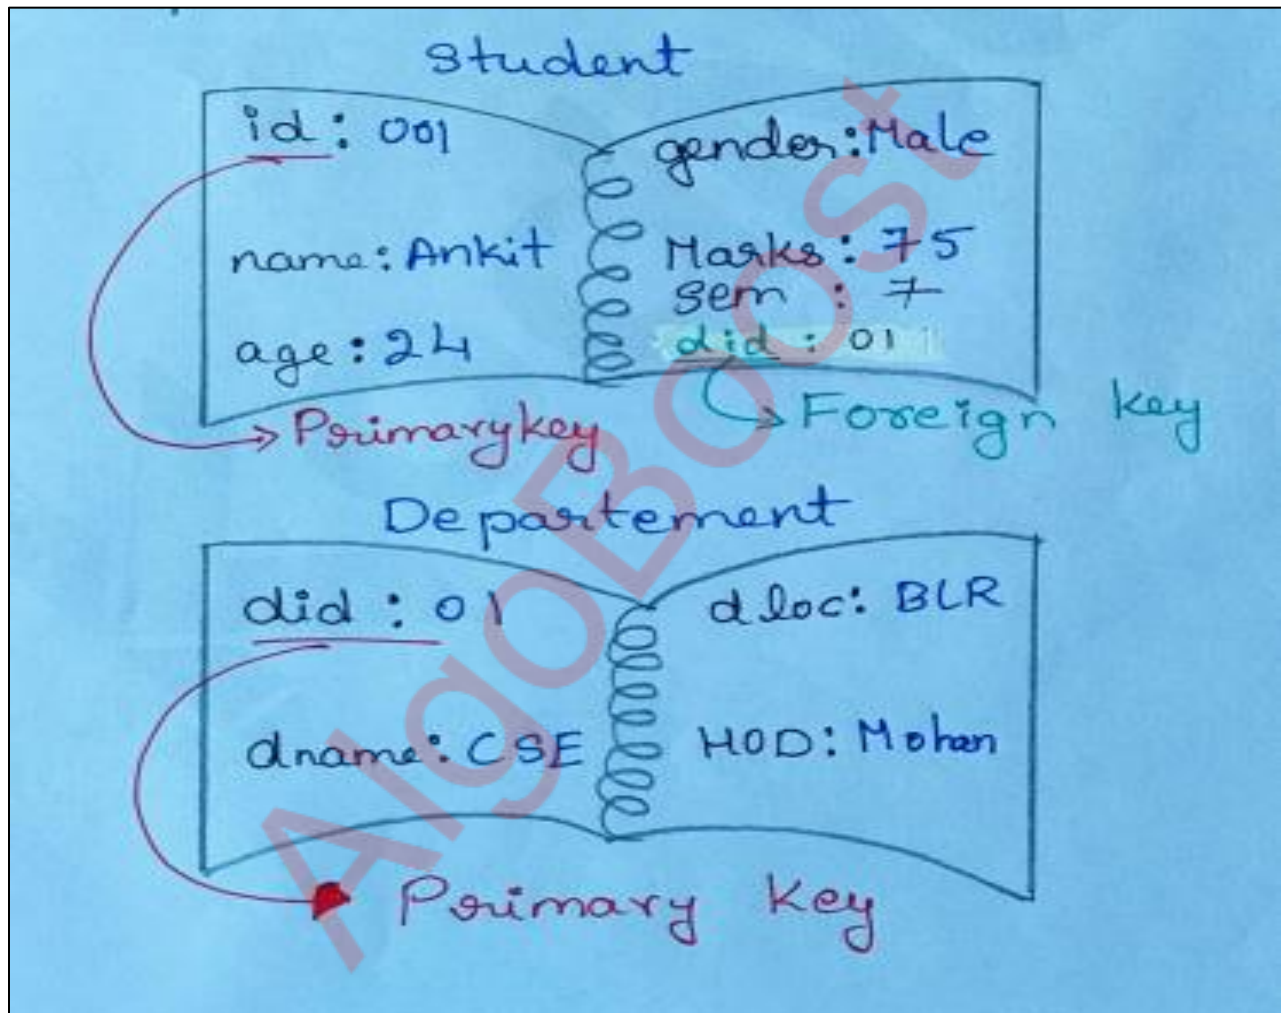 Student
id: 001
name: Ankit
age: 24
gender: Male
Marks: 75
sem : 7
did : 01
Primary key
Foreign key
Departement
did : 01
dname: CSE
dloc: BLR
HOD: Mohan
Primary key
AlgoBoost